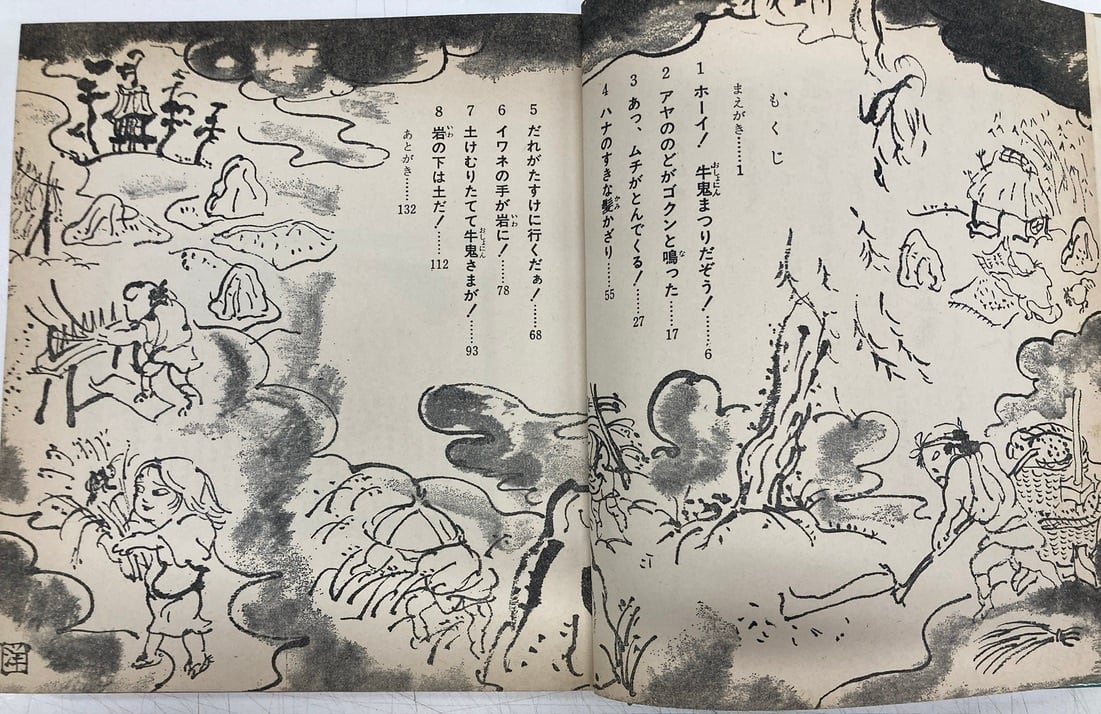 もくじ
まえがき……1
1 ホーイ! 牛鬼まつりだぞう!……6
おしょにん
2 アヤののどがゴクンと鳴った……17
な
3 あっ、ムチがとんでくる!……27
4 ハナのすきな髪かざり……55
かみ
5 だれがたすけに行くだぁ!……68
6 イワネの手が岩に!……78
いわ
7 土けむりたてて牛鬼さまが!……93
おしょにん
8 岩の下は土だ!……112
いわ
あとがき……132